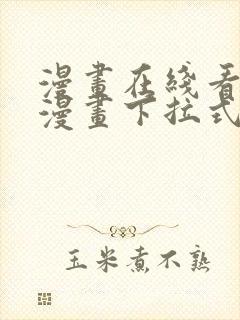 漫畫在綫看
漫畫下拉式
玉米煮不熟